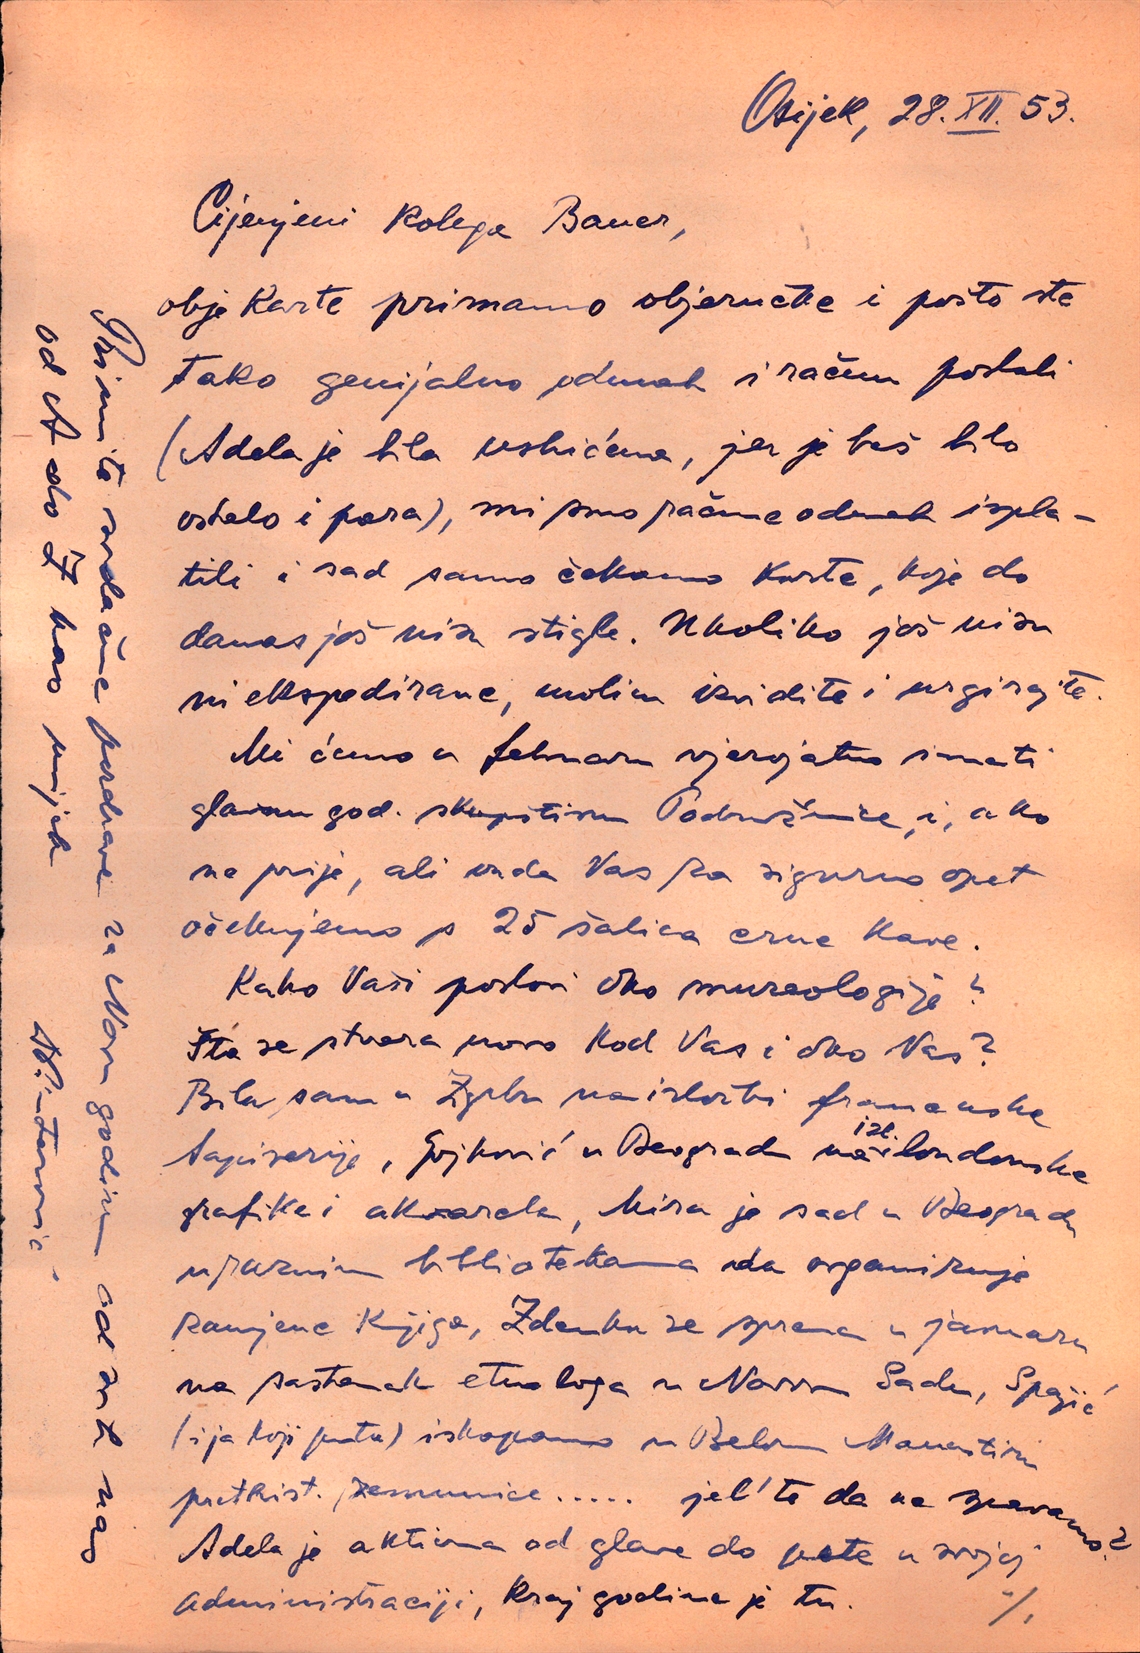 Osijek, 28. XII. 53.
Cijenjeni kolega Bauer,
obje karte primamo objeručke i pošto ste
tako genijalno odmah i račun poslali
(Adela je bila ushićena, jer je baš bilo
ostalo i para), mi smo račune odmah ispla-
tili i sad samo čekamo karte, koje do
danas još nisu stigle. Ukoliko još nisu
ni ekspedirane, molim izvidite i urgirajte.
Mi ćemo u februaru vjerojatno imati
glavnu god. skupštinu Podružnice, i, ako
ne prije, ali onda Vas za sigurno opet
očekujemo s 25 šalica crne kave.
Kako Vaši poslovi oko muzeologije?
Šta se stvara novo kod Vas i oko Vas?
Bila sam u Zgrbu na izložbi francuske
tapiserije, Gojković u Beogradu na izl. londonske
grafike i akvarela, Mira je sad u Beogradu
u raznim bibliotekama da organizuje
zamjene knjiga, Zdenka se sprema u januaru
na sastanak etnologa u Novom Sadu, Spajić
(i ja koji puta) iskopamo u Belom Manastiru
prethist. zemunice..... jel' te da ne spavamo?
Adela je aktivna od glave do pete u svojoj
administraciji, kraj godine je tu.
%.
Primite srdačne pozdrave za Novu godinu od svih nas
od A do Ž kao uvijek